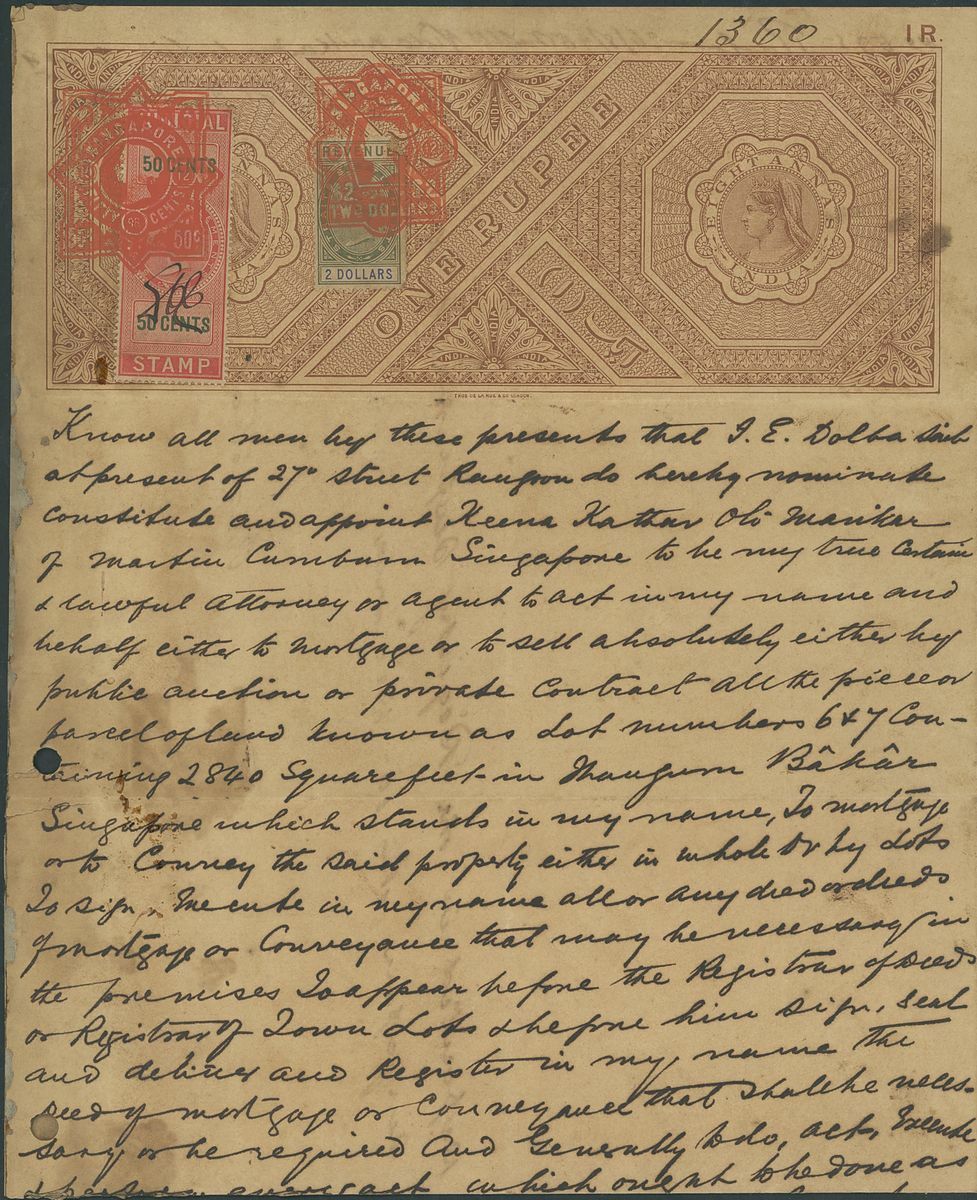 1360
1 R.
SINGAPORE
JUDICIAL
50 CENTS
FIFTY CENTS
50c
50 CENTS
STAMP
SINGAPORE
REVENUE
$2 $2
TWO DOLLARS
2 DOLLARS
ONE RUPEE
EIGHT ANNAS
INDIA
THOS DE LA RUE & CO LONDON.
Know all men by these presents that I. E. Dolba
at present of 27th street Rangoon do hereby nominate
constitute and appoint Keena Kathar Oli Mariker
of Martin Singapore to be my true Certain
& lawful Attorney or agent to act in my name and
behalf either to mortgage or to sell absolutely either by
public auction or private Contract all the piece or
parcel of land known as Lot numbers 6 & 7 Con-
taining 2840 Square feet in Bâhâr
Singapore which stands in my name, To mortgage
or to Convey the said property either in whole or by Lots
To sign, Execute in my name all or any deed or deeds
of mortgage or Conveyance that may be necessary in
the premises To appear before the Registrar of Deeds
or Registrar of Town Lots & before him sign, seal
and deliver and Register in my name the
Deed of mortgage or Conveyance that shall be neces-
sary or be required And Generally to do, act, Execute
& perform every act which ought to be done as